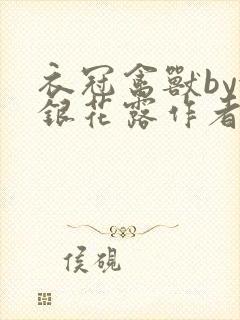 衣冠禽獸by
銀花露作者
侯硯